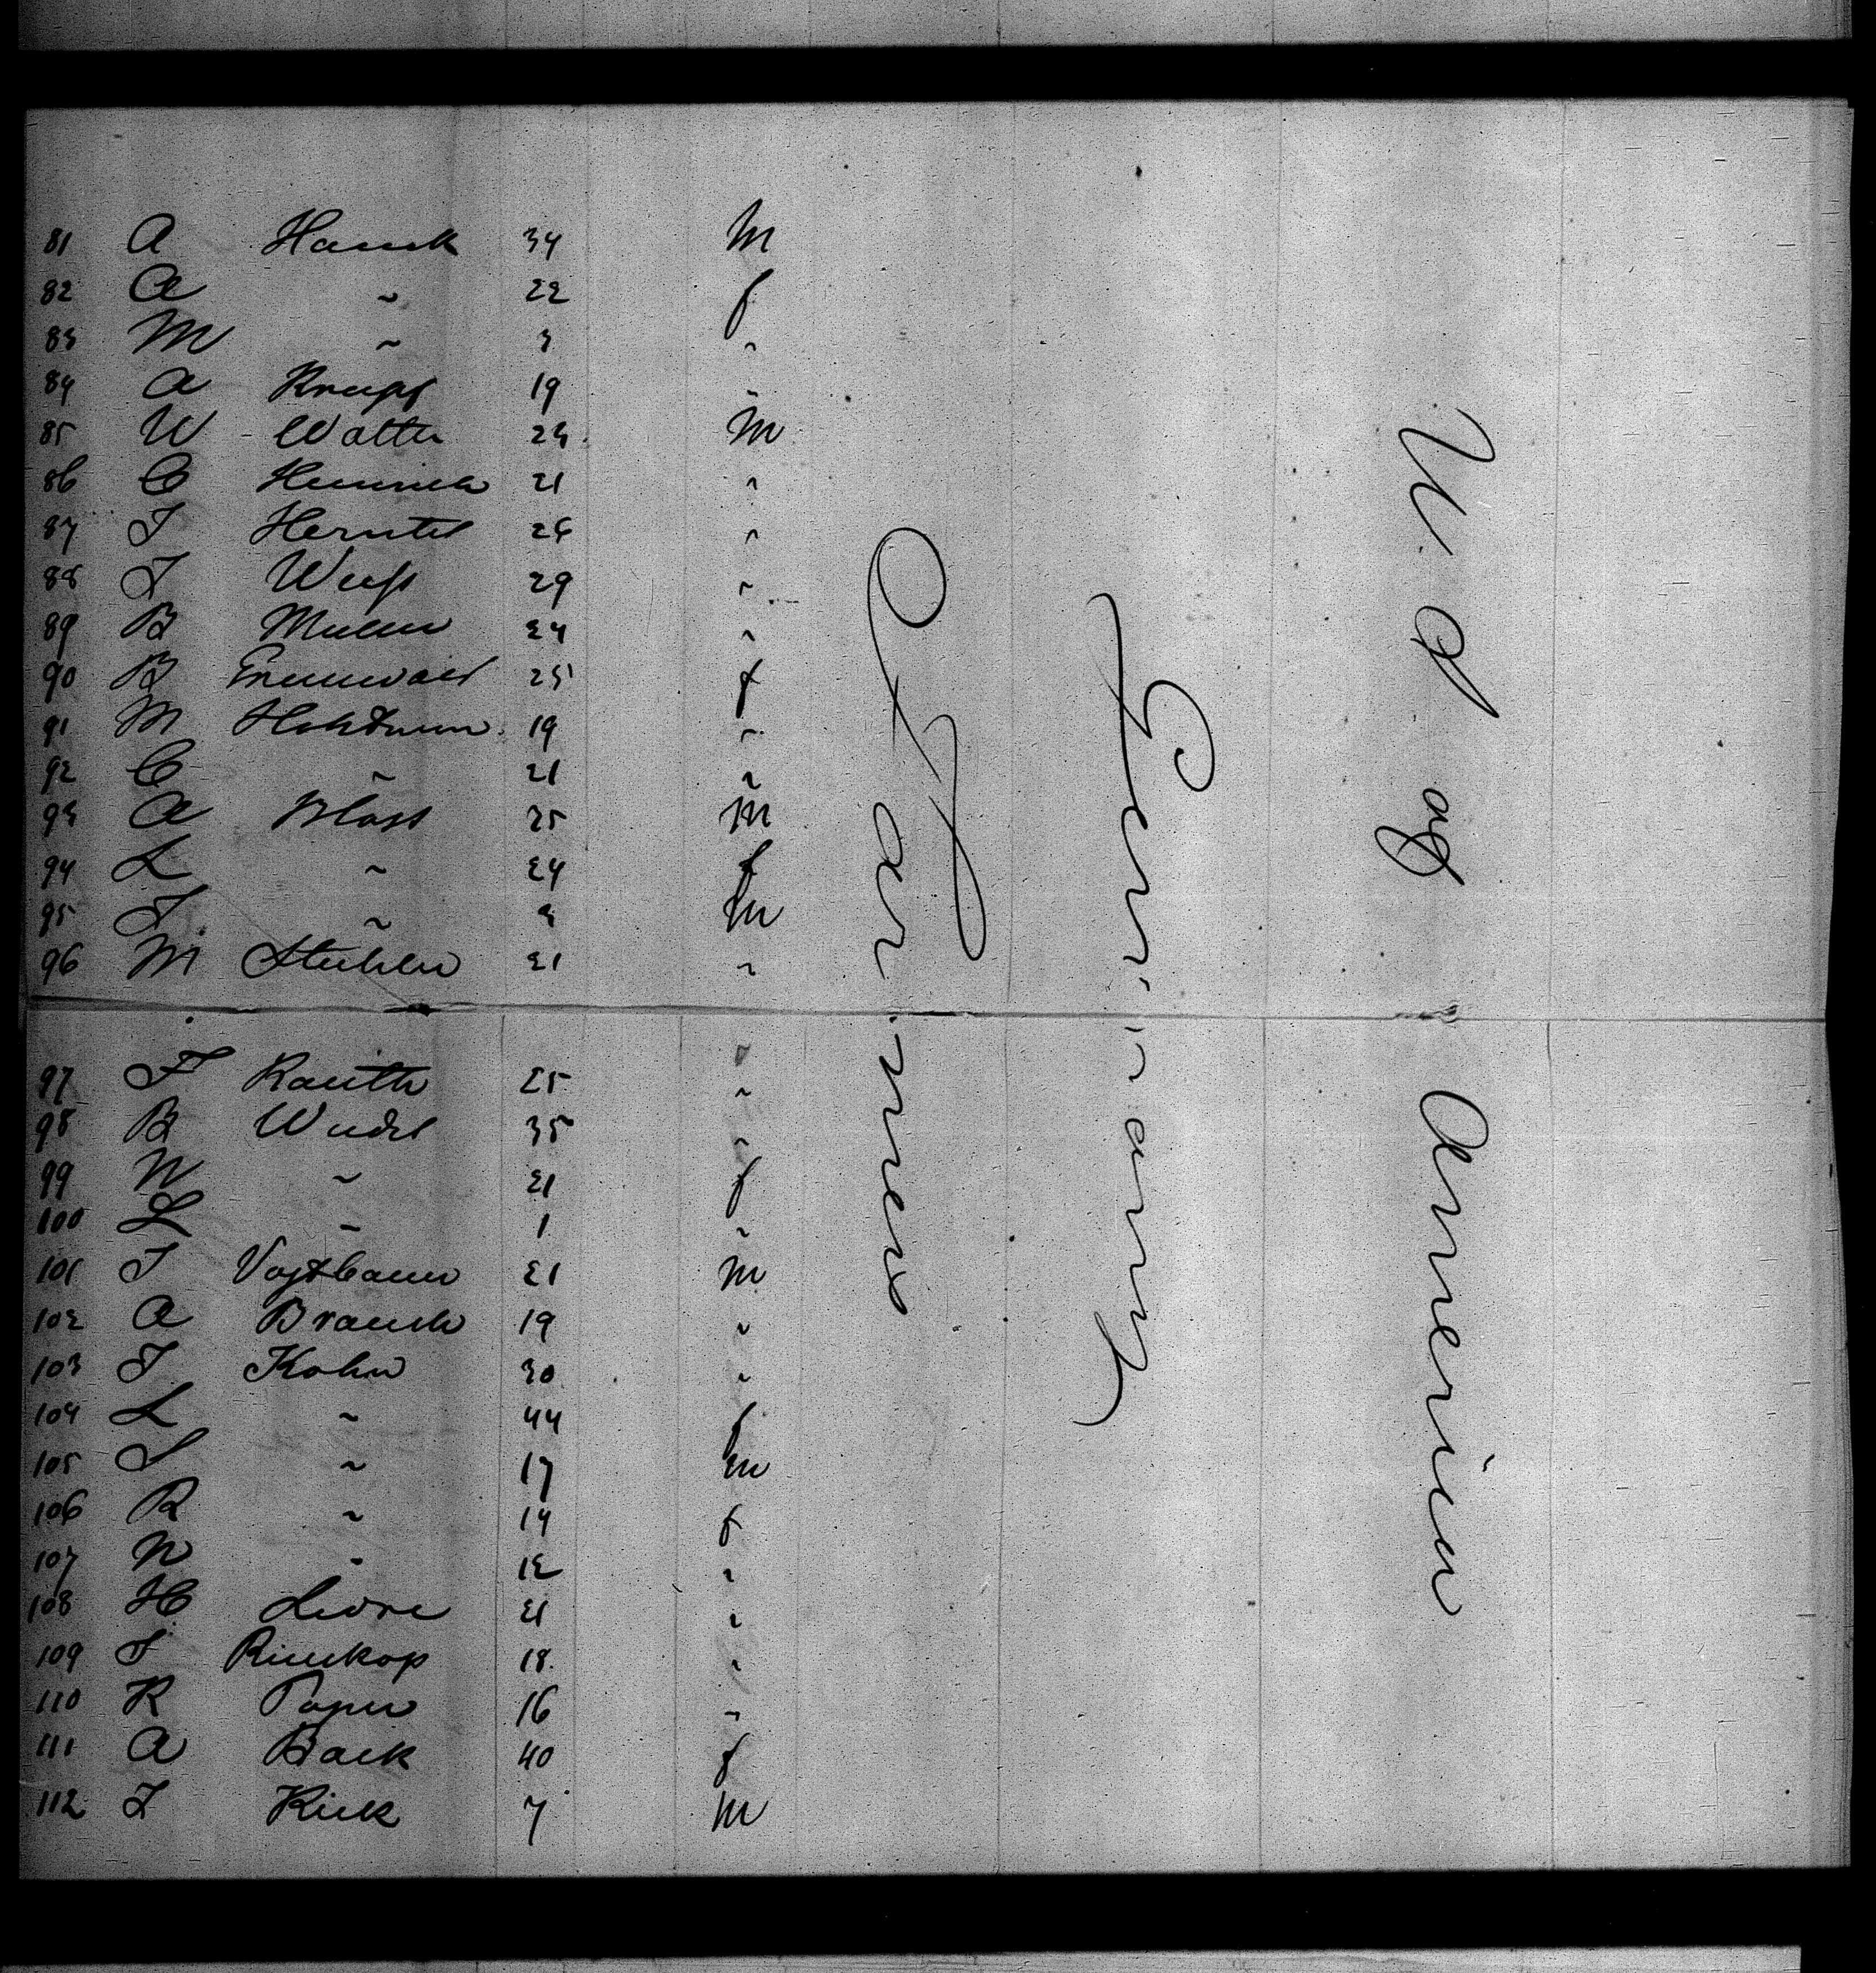 81 A Hauck 34 M
82 A ~ 22 f
83 M ~ 3 "
84 A Krupp 19 "
85 W Walter 24 M
86 C Heinrich 21 "
87 J Hertel 26 "
88 J Weiss 29 "
89 B Muller 24 "
90 B Grunwald 25 f
91 M 19 "
92 C ~ 21 "
93 A Blass 25 M
94 L ~ 24 f
95 J ~ M
96 M 21 "
97 F 25 "
98 B 35 "
99 N ~ 21 f
100 L ~ 1 "
101 J 21 M
102 A Brauch 19 "
103 J Kohn 30 "
104 L ~ 44 f
105 S ~ 17 m
106 R ~ 14 f
107 N ~ 12 "
108 H 21 "
109 J 18 "
110 K 16 "
111 A Back 40 f
112 J 7 M
Farmers
Germany
U S of America